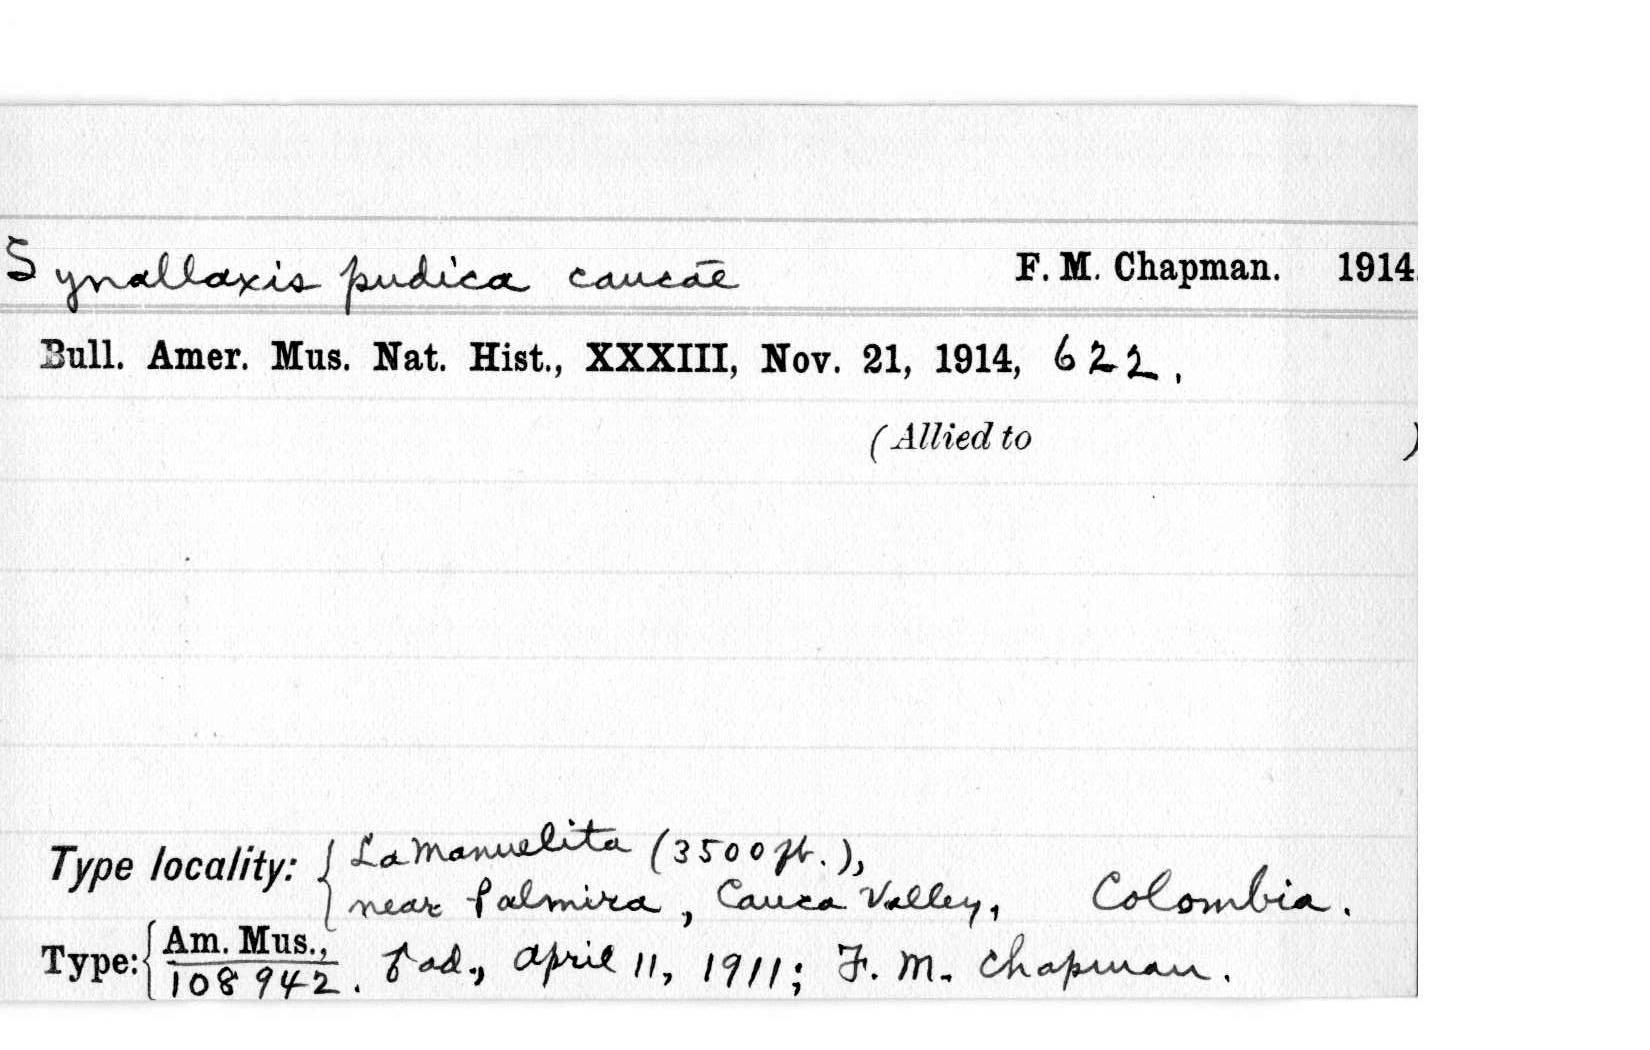 Synallaxis pudica caucae F. M. Chapman. 1914.
Bull. Amer. Mus. Nat. Hist., XXXIII, Nov. 21, 1914, 622.
(Allied to )
Type locality: { La Manuelita (3500 ft.),
near Palmira, Cauca Valley, Colombia.
Type: { Am. Mus.,
108942. ad., April 11, 1911; F. M. Chapman.